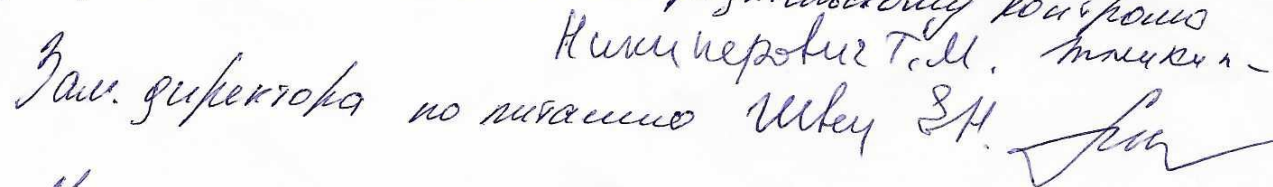 контролю
Никиперович Т.М.
Зам. директора по питанию Швец З.Н.